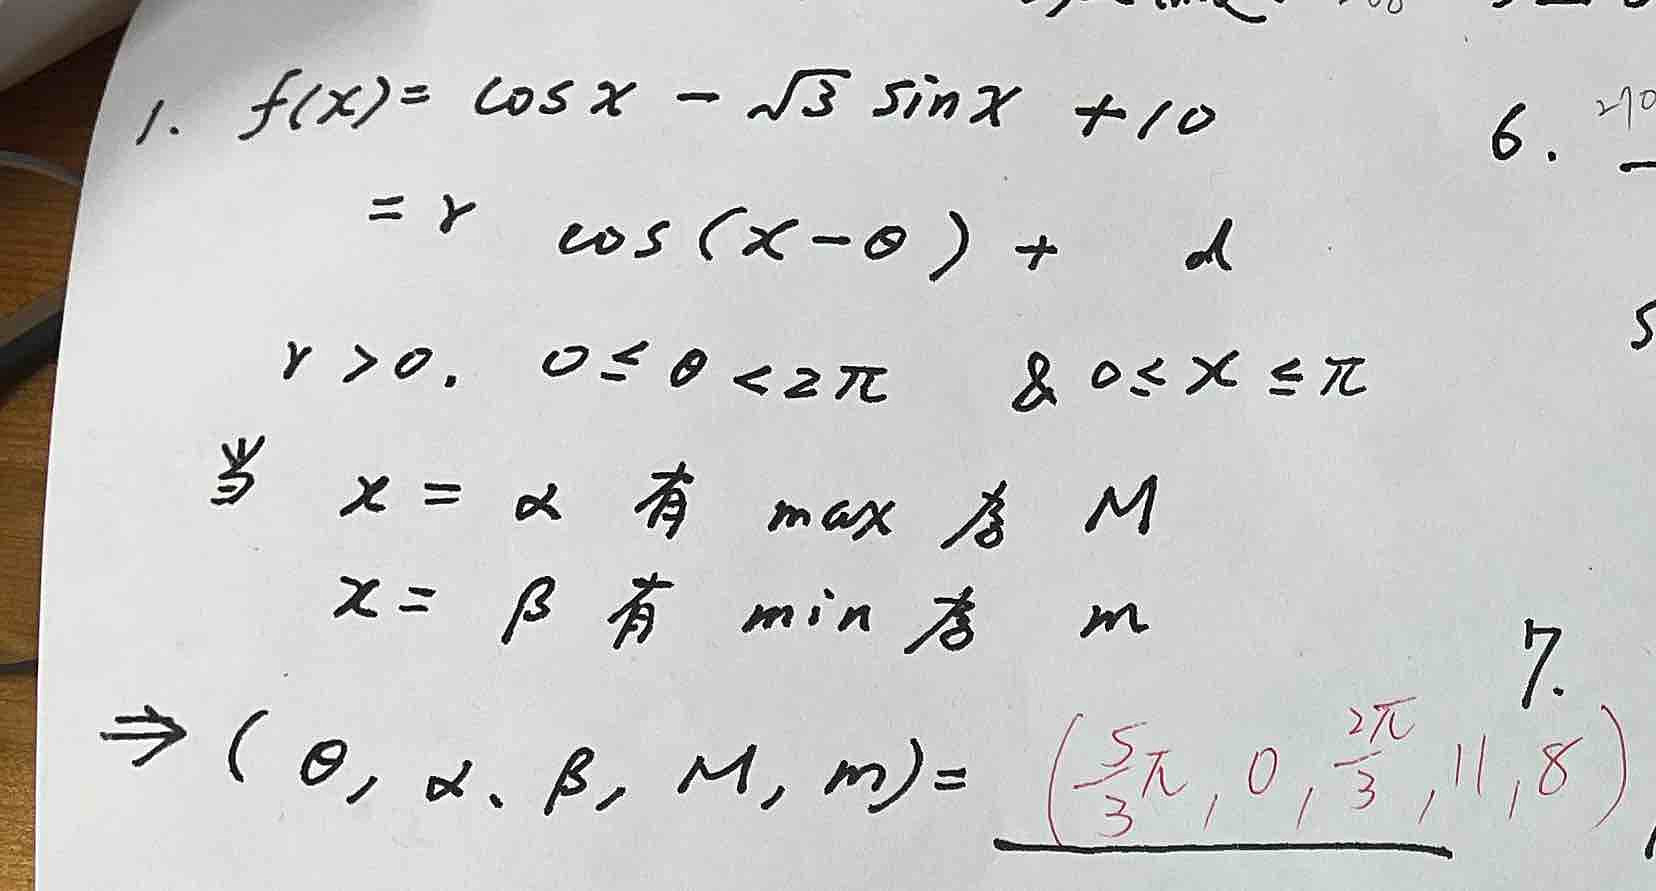 1. f(x)= cosx - √3 sinx +10
6.
= r cos(x-θ) + d
r>0. 0≤θ<2π & 0≤x≤π
当 x = α 有 max 为 M
x = β 有 min 为 m
7.
⇒ (θ, α、β, M, m)= (5/3 π, 0, 2π/3, 11, 8)